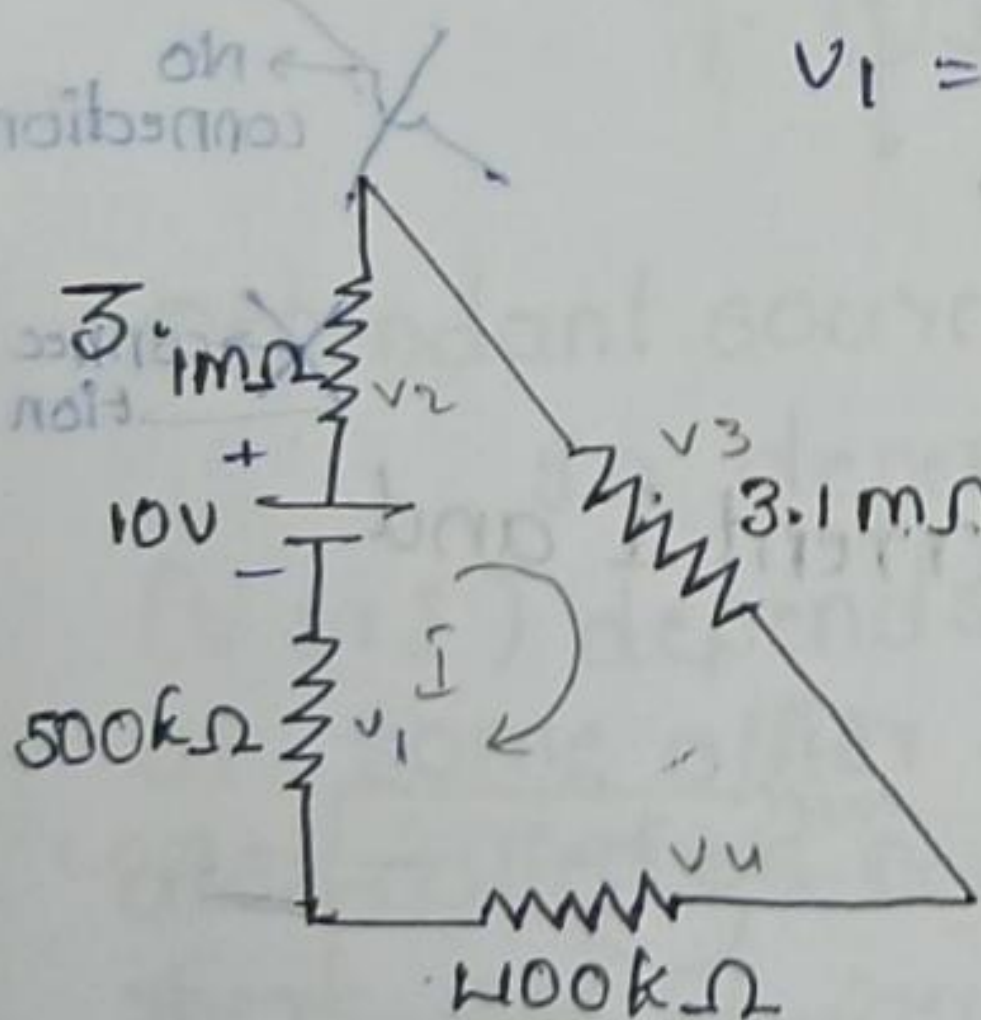 V1 =
3.1mΩ
V2
+
10V
−
V3
3.1mΩ
I
500kΩ
V1
V4
400kΩ